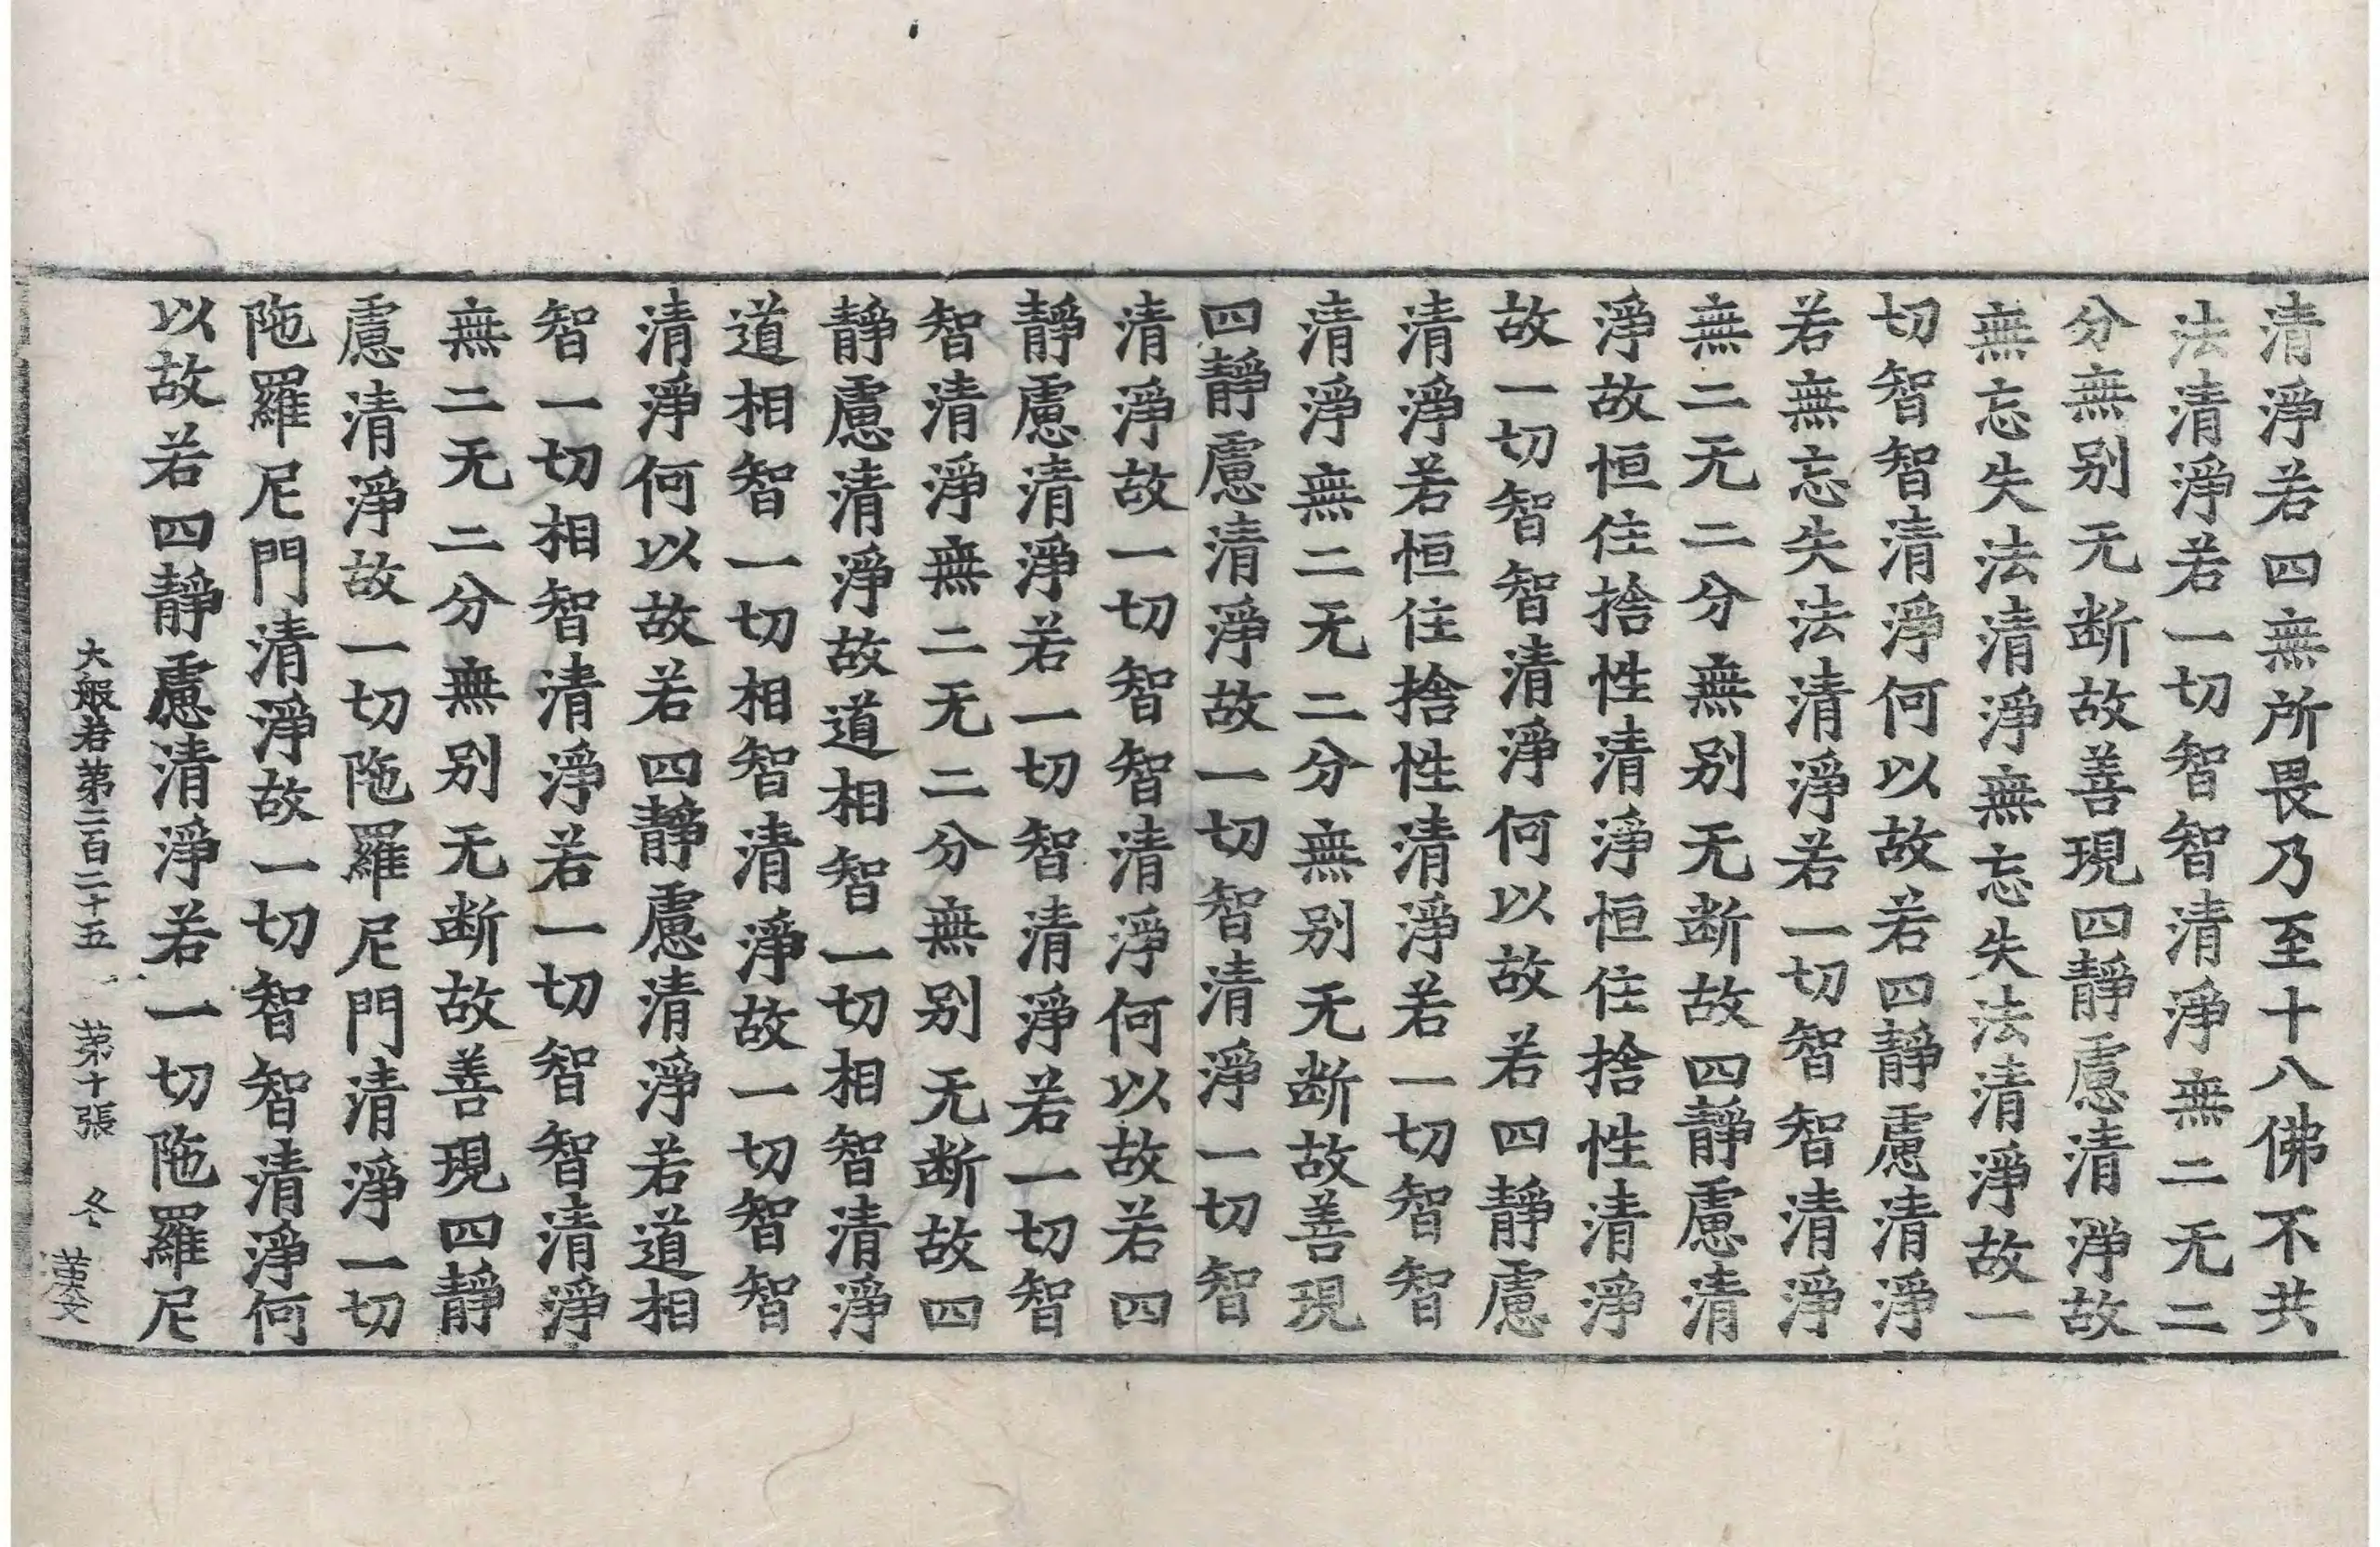 清淨若四無所畏乃至十八佛不共
法清淨若一切智智清淨無二无二
分無别无断故善現四靜慮清淨故
無忘失法清淨無忘失法清淨故一
切智智清淨何以故若四靜慮清淨
若無忘失法清淨若一切智智清淨
無二无二分無别无断故四靜慮清
淨故恒住捨性清淨恒住捨性清淨
故一切智智清淨何以故若四靜慮
清淨若恒住捨性清淨若一切智智
清淨無二无二分無别无断故善現
四靜慮清淨故一切智清淨一切智
清淨故一切智智清淨何以故若四
靜慮清淨若一切智清淨若一切智
智清淨無二无二分無别无断故四
靜慮清淨故道相智一切相智清淨
道相智一切相智清淨故一切智智
清淨何以故若四靜慮清淨若道相
智一切相智清淨若一切智智清淨
無二无二分無别无断故善現四靜
慮清淨故一切陁羅尼門清淨一切
陁羅尼門清淨故一切智智清淨何
以故若四靜慮清淨若一切陁羅尼
大般若第二百二十五 第十張 冬